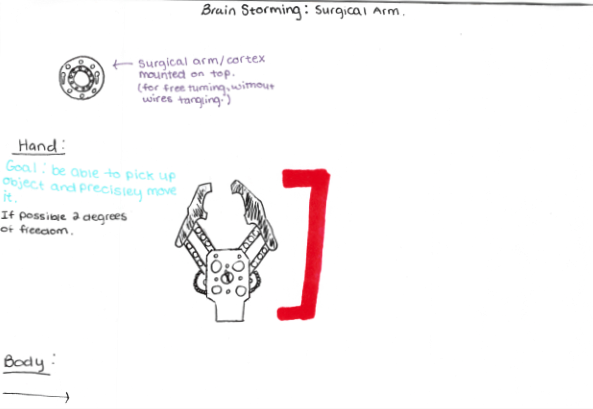 Brain Storming: Surgical Arm.
Surgical arm/cortex
mounted on top.
(for free turning, without
wires tangling.)
Hand:
Goal: be able to pick up
object and precisley move
it.
If possible 2 degrees
of freedom.
Body: